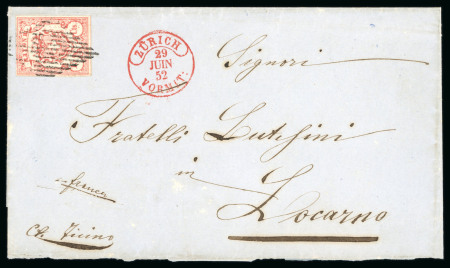 ZÜRICH
29
JUIN
52
VORMIT.
Signori
Fratelli
in
Locarno
Ct. Ticino